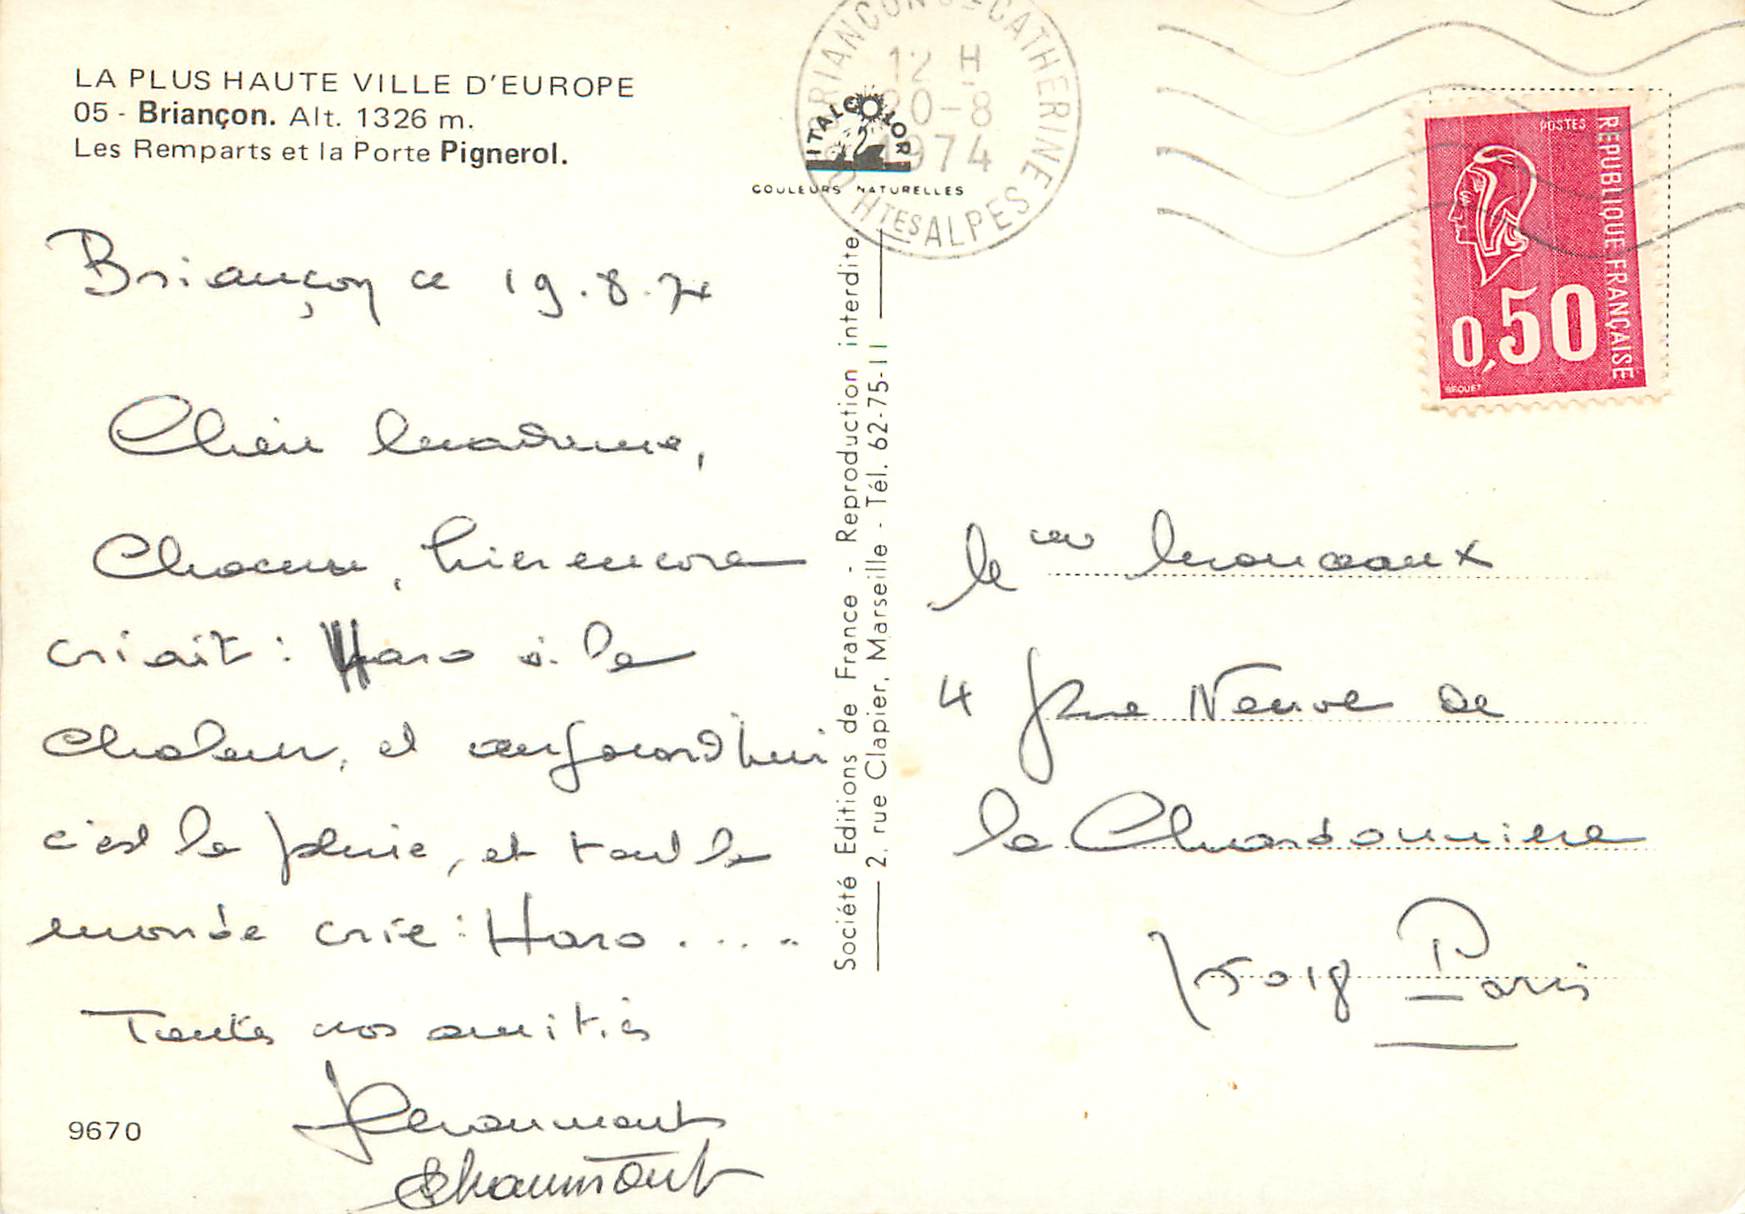 LA PLUS HAUTE VILLE D'EUROPE
05 - Briançon. Alt. 1326 m.
Les Remparts et la Porte Pignerol.
ITALCOLOR
COULEURS NATURELLES
BRIANÇON STE CATHERINE
12 H
20-8
1974
HTES ALPES
POSTES
REPUBLIQUE FRANÇAISE
0,50
BROUET
Briançon ce 19.8.74
Chère madame,
Chacun, hier encore
criait : Haro à la
chaleur, et aujourd'hui
c'est la pluie, et tout le
monde crie : Haro....
Toutes nos amitiés
Chaumont
9670
Société Editions de France - Reproduction interdite
2, rue Clapier, Marseille - Tél. 62-75-11
Monceaux
4 Rue Neuve de
la Chardonnière
75018 Paris